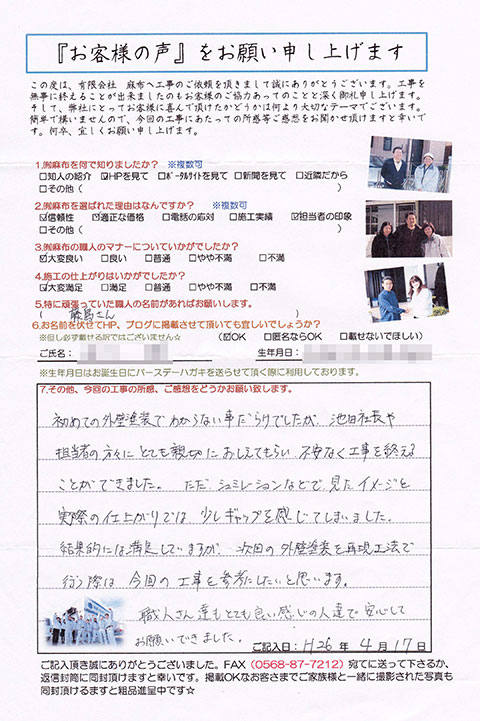 『お客様の声』をお願い申し上げます
この度は、有限会社 麻布へ工事のご依頼を頂きまして誠にありがとうございます。工事を
無事に終えることが出来ましたのもお客様のご協力あってのことと深く御礼申し上げます。
そして、弊社にとってお客様に喜んで頂けたかどうかは何より大切なテーマでございます。
簡単で構いませんので、今回の工事にあたっての所感等ご感想をお聞かせ頂けますと幸いで
す。何卒、宜しくお願い申し上げます。
1.㈲麻布を何で知りましたか? ※複数可
□知人の紹介 ☑HPを見て □ポータルサイトを見て □新聞を見て □近隣だから
□その他( )
2.㈲麻布を選ばれた理由はなんですか? ※複数可
☑信頼性 ☑適正な価格 □電話の応対 □施工実績 ☑担当者の印象
□その他( )
3.㈲麻布の職人のマナーについていかがでしたか?
☑大変良い □良い □普通 □やや不満 □不満
4.施工の仕上がりはいかがでしたか?
☑大変満足 □満足 □普通 □やや不満 □不満
5.特に頑張っていた職人の名前があればお願いします。
( 藤島さん )
6.お名前を伏せてHP、ブログに掲載させて頂いても宜しいでしょうか?
※但し必ず載せる訳ではございません☆ (☑OK □匿名ならOK □載せないでほしい)
ご氏名: 生年月日:
※生年月日はお誕生日にバースデーハガキを送らせて頂く際に利用しております。
7.その他、今回の工事の所感、ご感想をどうかお願い致します。
初めての外壁塗装でわからない事だらけでしたが、池田社長や
担当者の方々にとても親切におしえてもらい 不安なく工事を終える
ことができました。 ただ シュミレーションなどで見たイメージと
実際の仕上がりでは 少しギャップを感じてしまいました。
結果的には満足していますが、次回の外壁塗装を再現工法で
行う際は 今回の工事を参考にしたいと思います。
職人さん達もとても良い感じの人達で安心して
お願いできました。
ご記入日: H26 年 4 月 17 日
ご記入頂き誠にありがとうございました。FAX(0568-87-7212)宛てに送って下さるか、
返信封筒に同封頂けますと幸いです。掲載OKなお客さまでご家族様と一緒に撮影された写真も
同封頂けるますと粗品進呈中です☆